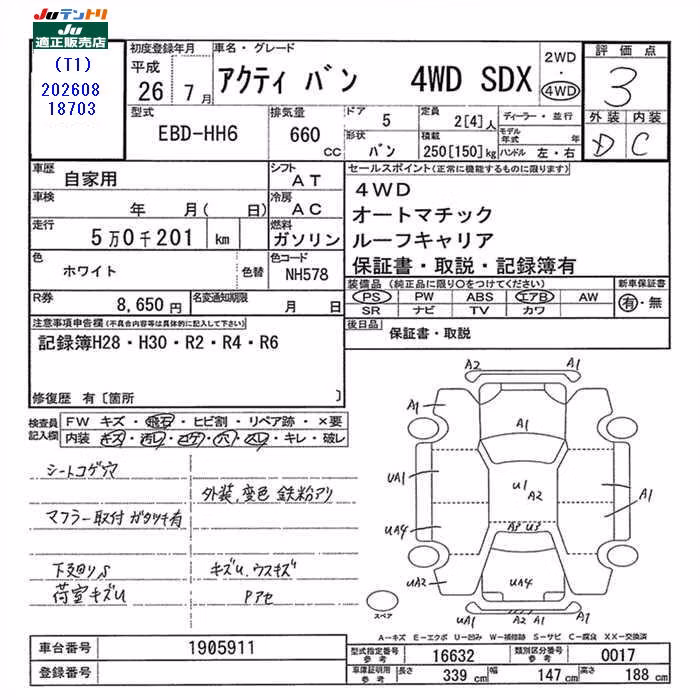 Juテントリ
Ju
適正販売店
(T1)
202608
18703
初度登録年月
平成
26 7月
車名・グレード
アクティ バン 4WD SDX
2WD
・
4WD
評価点
3
外装 内装
D C
型式
EBD-HH6
排気量
660
CC
ドア
5
形状
バン
定員
2[4]人
積載
250[150]kg
ディーラー・並行
モデル
年式 年
ハンドル 左・右
車歴
自家用
車検
年 月( 日)
走行
5万0千201 km
色
ホワイト
色替
シフト
AT
冷房
AC
燃料
ガソリン
色コード
NH578
R券
8,650円
名変通知期限
月 日
セールスポイント(正常に機能するものに限ります)
4WD
オートマチック
ルーフキャリア
保証書・取説・記録簿有
装備品(純正品に限り○をつけてください)
PS PW ABS エアB AW
SR ナビ TV カワ
新車保証書
有・無
後日品
保証書・取説
注意事項申告欄(不具合内容等は具体的に記入して下さい)
記録簿H28・H30・R2・R4・R6
修復歴 有[箇所 ]
検査員
記入欄
FW キズ・飛石・ヒビ割・リペア跡・×要
内装 キズ・汚レ・コゲ・穴・スレ・キレ・破レ
シートコゲ穴
外装、変色 鉄粉アリ
マフラー取付ガタツキ有
下廻りS
キズU.ウスキズ
荷室キズU
Pアセ
A2 A1
A1
A1
UA1
U1
A2
A1
UA4
A3 U3
UA2
UA4
A2 A1
A1
スペア
A-キズ E-エクボ U-凹み W-補修跡 S-サビ C-腐食 XX-交換済
車台番号
1905911
登録番号
型式指定番号
参考
16632
類別区分番号
参考
0017
車庫証明用
参考
長さ 339cm 幅 147cm 高さ 188cm